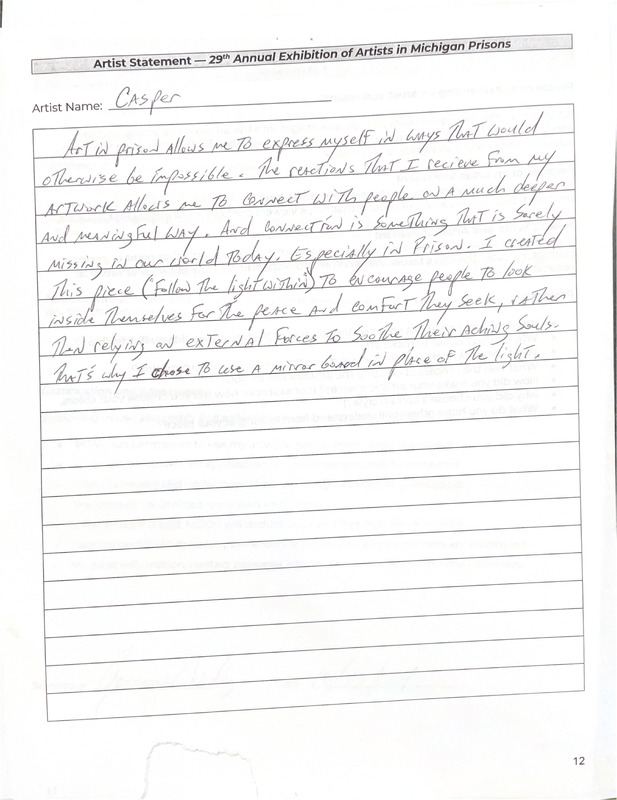 Artist Statement — 29th Annual Exhibition of Artists in Michigan Prisons
Artist Name: Casper
Art in prison allows me to express myself in ways that would
otherwise be impossible. The reactions that I recieve from my
artwork allows me to connect with people on a much deeper
and meaningful way. And connection is something that is sorely
missing in our world today. Especially in Prison. I created
this piece ("Follow the light within") to encourage people to look
inside themselves for the peace and comfort they seek, rather
then relying on external forces to soothe their aching souls.
That's why I chose to use a mirror board in place of the light.
12